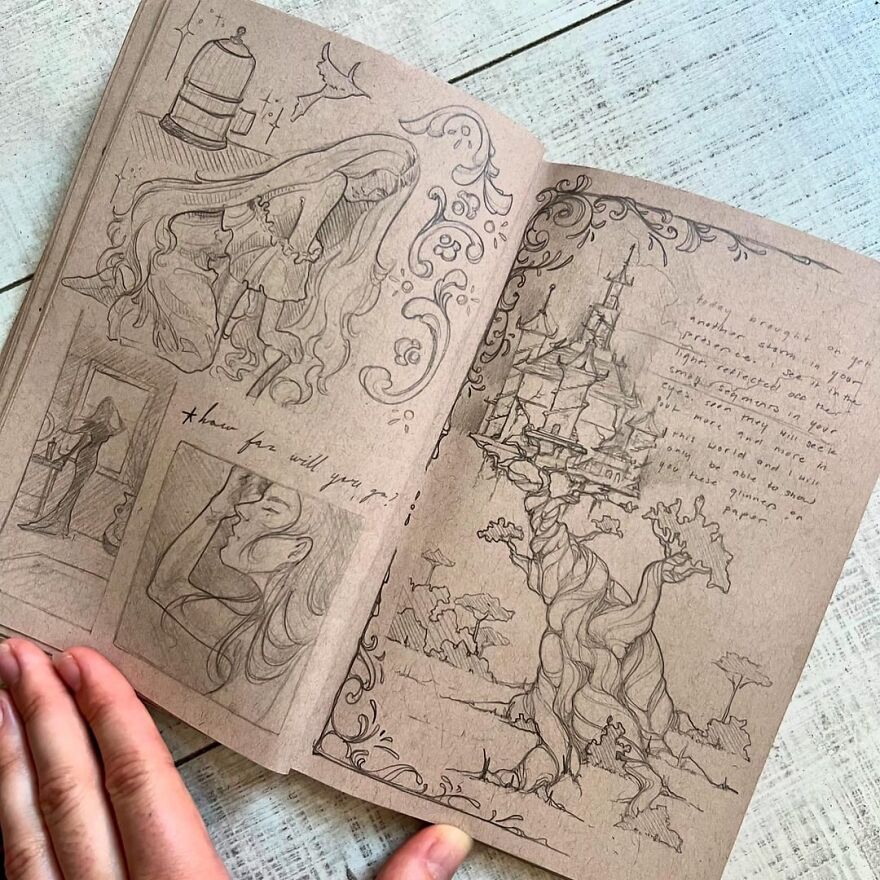 *how far will you go?
today brought on yet
another storm in your
presence. I see it in the
light reflected off the
small segments in your
eyes. soon they will seek
out more and more in
this world and i will
only be able to show
you these glimmers on
paper